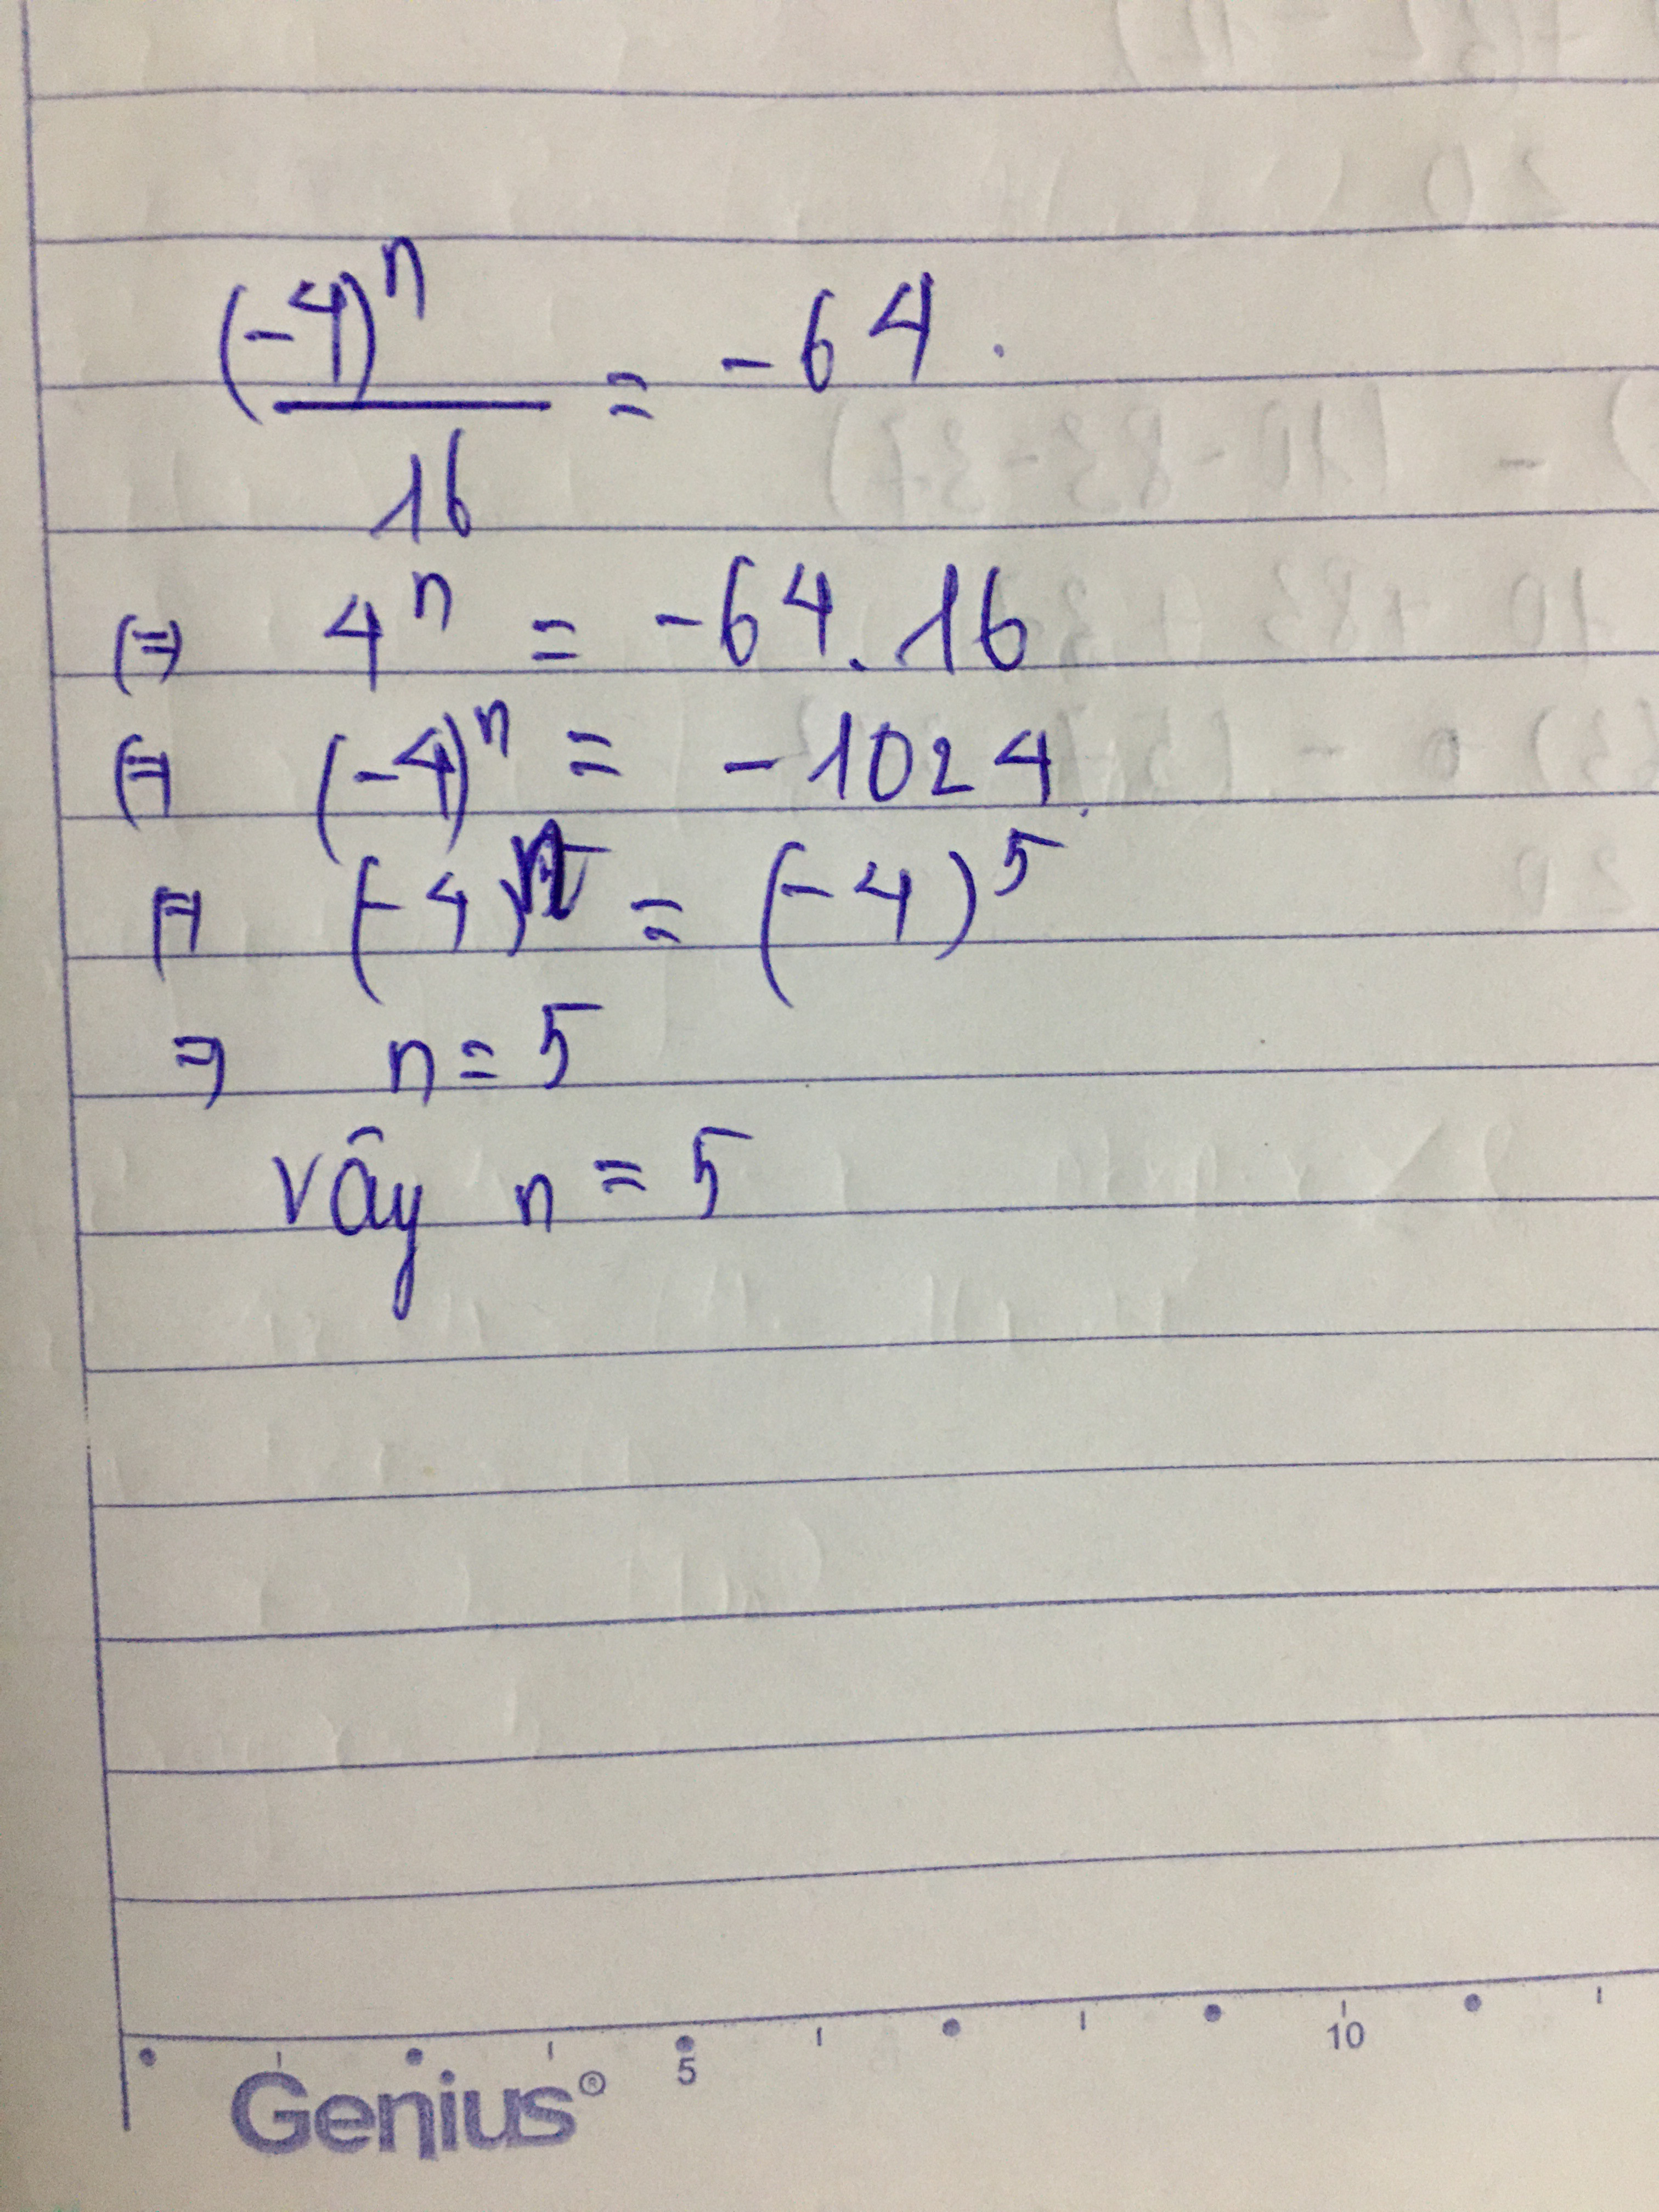 (-4)ⁿ
— = -64.
16
(=) 4ⁿ = -64.16
(=) (-4)ⁿ = -1024.
(=) (-4)ⁿ = (-4)⁵
=> n = 5
vây n = 5
5
10
Genius®